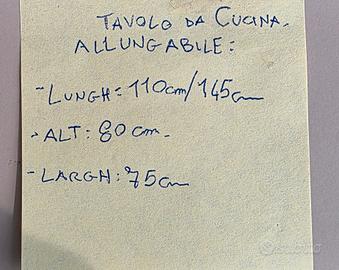 TAVOLO DA CUCINA.
ALLUNGABILE:
- LUNGH: 110cm/145cm
- ALT: 80 cm.
- LARGH: 75cm